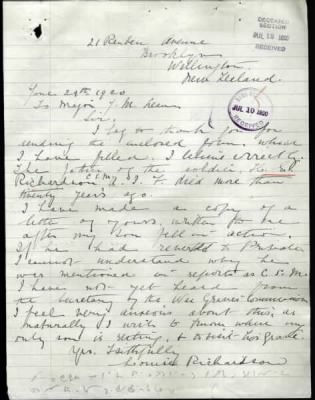 21 Reuben Avenue
Brooklyn
Wellington
New Zealand.
DECEASED
SECTION
JUL 19 1920
RECEIVED
June 29th 1920
To Major J. M. Lean
Sir,
I beg to thank for you
sending the enclosed form, which
I have filled, I believe correctly.
The father of the soldier,
Richardson A. I. F died more than
twenty years ago.
I have made a copy of a
letter of yours, written to me
after my son fell in action.
If he had reverted to Private
I cannot understand why he
was mentioned in reports as C.S.M.
I have not yet heard from
the Secretary of the War Graves Commission
I feel very anxious about this, as
naturally I wish to know where my
only son is resting, & to visit his grave.
Yrs. faithfully
Richardson
JUL 10 1920
RECEIVED